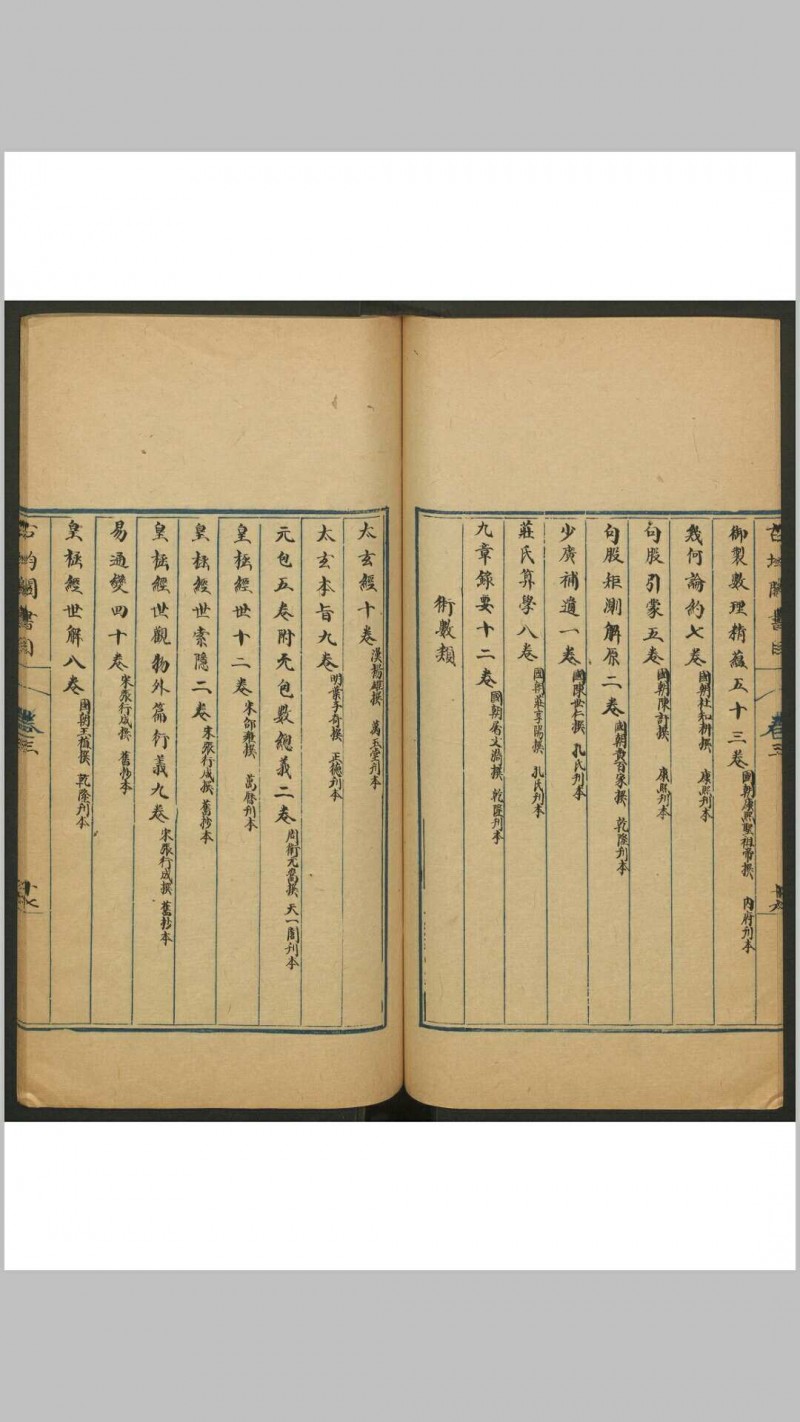 御製數理精蘊五十三卷 國朝康熙聖祖帝撰 內府刋本
幾何論約七卷 國朝杜知耕撰 康熙刋本
句股引蒙五卷 國朝陳訏撰 康熙刋本
句股矩測解原二卷 國朝黄百家撰 乾隆刋本
少廣補遺一卷 國陳世仁撰 孔氏刋本
莊氏算學八卷 國朝莊亨陽撰 孔氏刋本
九章錄要十二卷 國朝屠文漪撰 乾隆刋本
術數類
太玄經十卷 漢楊雄撰 萬玉堂刋本
太玄本旨九卷 明葉子奇撰 正德刋本
元包五卷附元包數總義二卷 周衛元嵩撰 天一閣刋本
皇極經世十二卷 宋邵雍撰 萬曆刋本
皇極經世索隱二卷 宋張行成撰 舊抄本
皇極經世觀物外篇衍義九卷 宋張行成撰 舊抄本
易通變四十卷 宋張行成撰 舊抄本
皇極經世解八卷 國朝王植撰 乾隆刋本